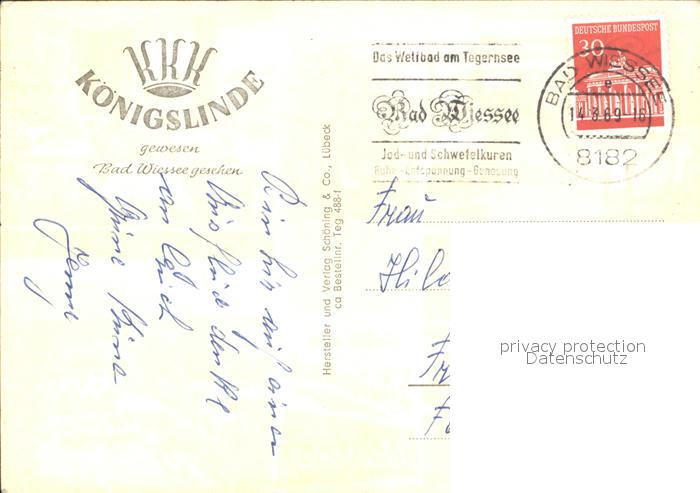 KKK
KÖNIGSLINDE
gewesen
Bad Wiessee gesehen
Bin hier auf einem
Ausflug denke
an Euch
Deine
Hersteller und Verlag Schöning & Co., Lübeck
ca Bestellnr. Teg 488-1
Das Weltbad am Tegernsee
Bad Wiessee
Jod- und Schwefelkuren
Ruhe-Entspannung-Genesung
DEUTSCHE BUNDESPOST
30
BAD WIESSEE
e
14.3.69-16
8182
Frau
privacy protection
Datenschutz